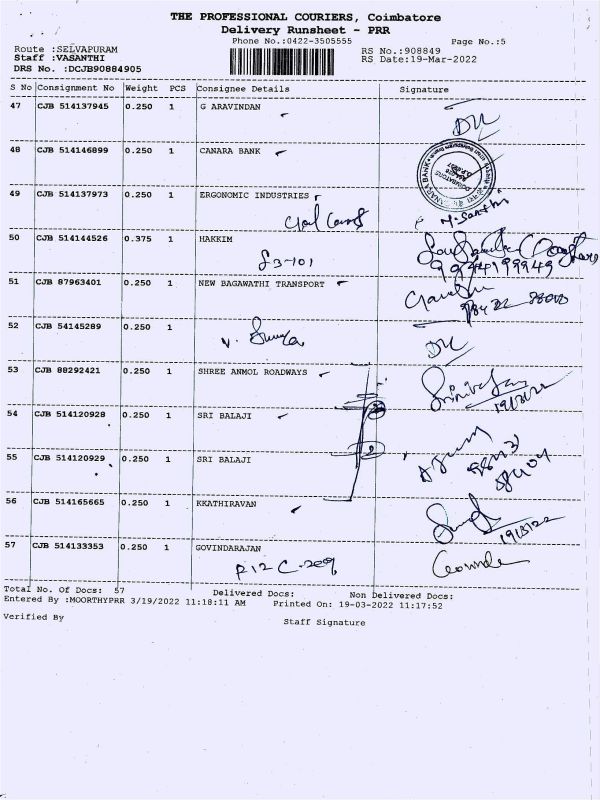 THE PROFESSIONAL COURIERS, Coimbatore
Delivery Runsheet - PRR
Phone No.:0422-3505555
Page No.:5
Route :SELVAPURAM
RS No.:908849
Staff :VASANTHI
RS Date:19-Mar-2022
DRS No. :DCJB90884905
S No Consignment No Weight PCS Consignee Details Signature
47 CJB 514137945 0.250 1 G ARAVINDAN
DU
48 CJB 514146899 0.250 1 CANARA BANK
CANARA BANK
49 CJB 514137973 0.250 1 ERGONOMIC INDUSTRIES
M. Santhi
50 CJB 514144526 0.375 1 HAKKIM
S3-101
9994199949
51 CJB 87963401 0.250 1 NEW BAGAWATHI TRANSPORT
52 CJB 54145289 0.250 1
V.
DU
53 CJB 88292421 0.250 1 SHREE ANMOL ROADWAYS
Srinivasan
19/3/22
54 CJB 514120928 0.250 1 SRI BALAJI
2
55 CJB 514120929 0.250 1 SRI BALAJI
56 CJB 514165665 0.250 1 KKATHIRAVAN
19/3/22
57 CJB 514133353 0.250 1 GOVINDARAJAN
P12 C-209
Govinda
Total No. Of Docs: 57 Delivered Docs: Non Delivered Docs:
Entered By :MOORTHYPRR 3/19/2022 11:18:11 AM Printed On: 19-03-2022 11:17:52
Verified By
Staff Signature